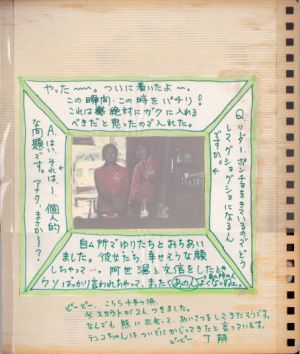 やった〜〜。ついに着いたよー。
この瞬間・この時をパチリ!
これは絶対にガクに入れる
べきだと思ったので入れた。
Q.リーダー、ポンチョをきているのでどう
して、グショグショになるん
ですか。
A.はい、それは、個人的
な問題です。アナタ、まさか〜〜?
でゆりたちとおちあい
ました。彼女たち、幸せそうな顔
しちゃって…。阿世潟と交信をしたとき
ウソばっかり言われちゃって、また(あの)
ビービー、こちら
今スカウトが2人つきました。
なんでも熊に出会って、あいさつをしてきたそうです。
テンコちゃんは、ついてにかじってきたと言っています。
ビービー 了解